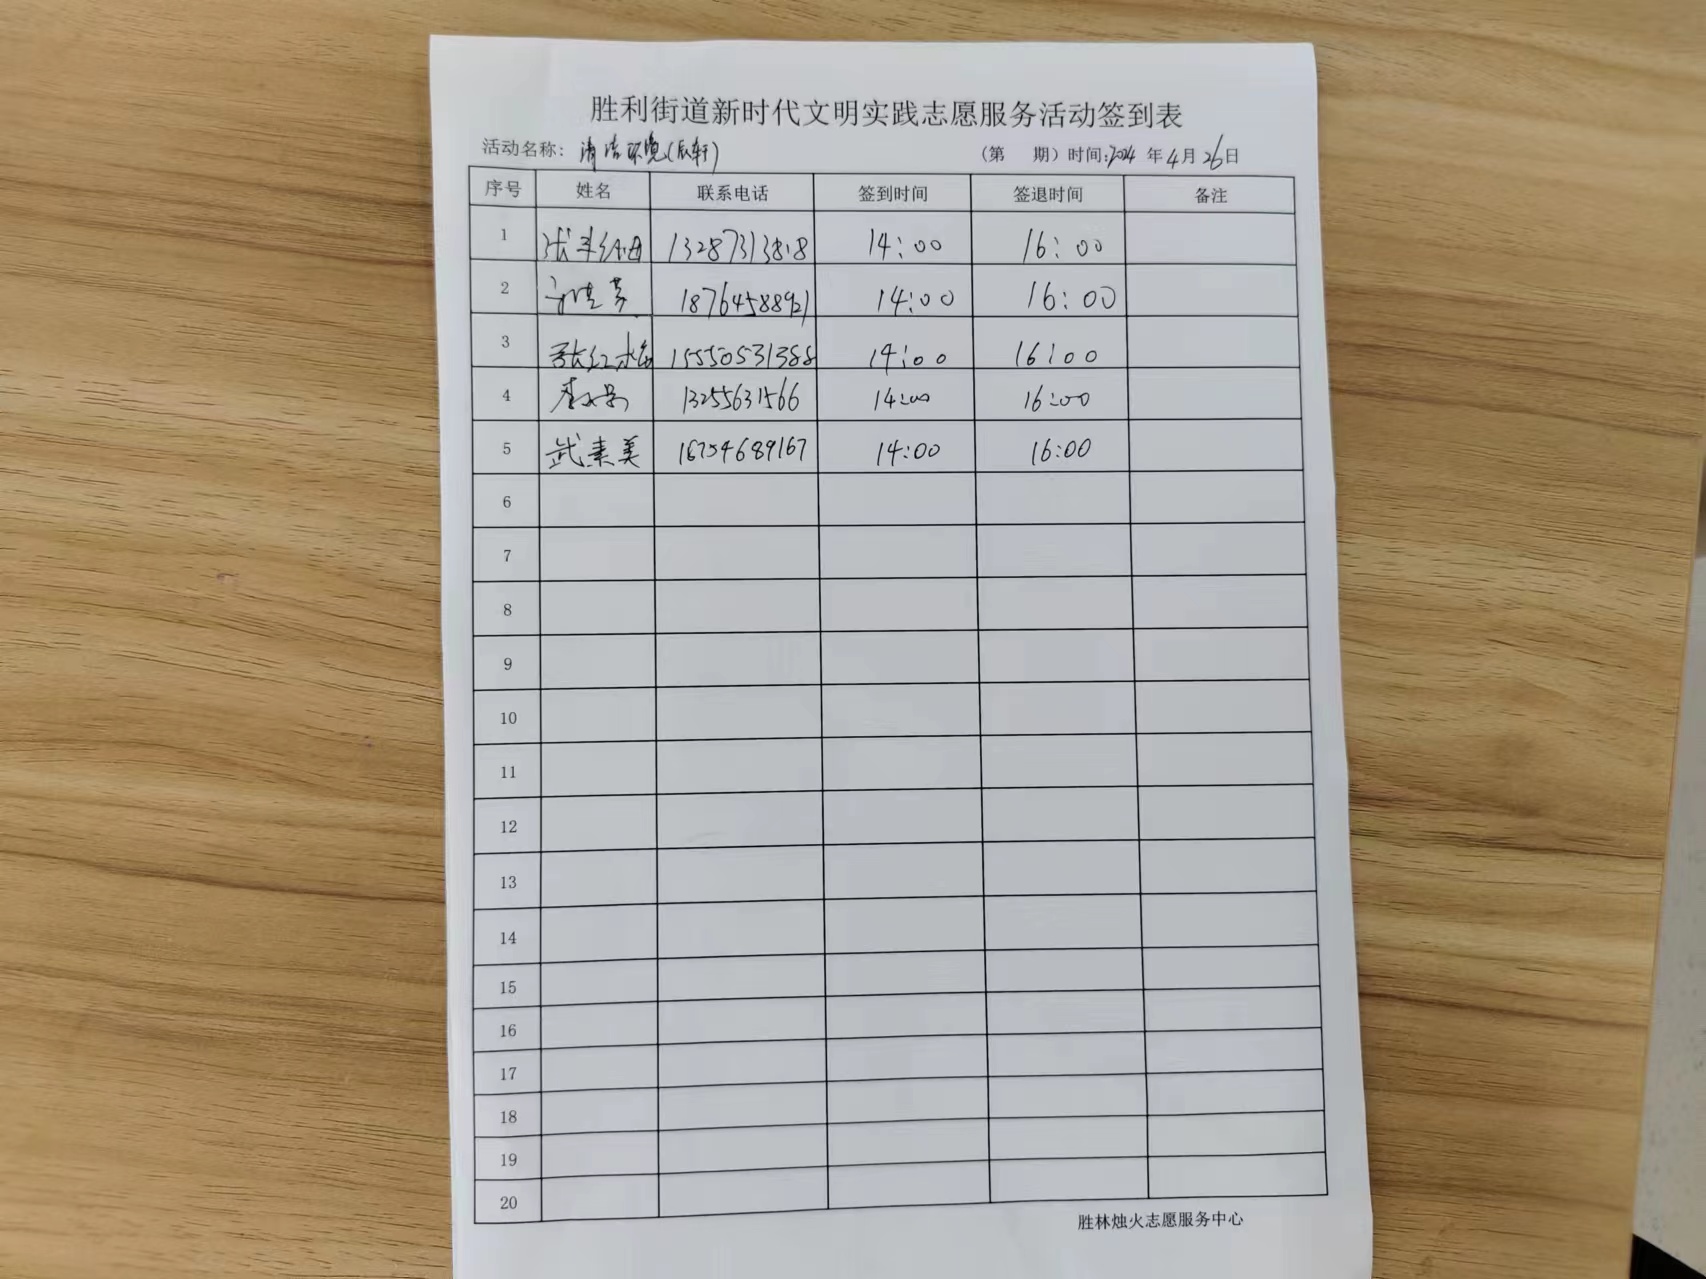 胜利街道新时代文明实践志愿服务活动签到表
活动名称：清洁环境(辰轩) （第 期）时间：2024年4月26日
序号 姓名 联系电话 签到时间 签退时间 备注
1 13287313818 14:00 16:00
2 18764588921 14:00 16:00
3 张红梅 15550531388 14:00 16:00
4 13255631566 14:00 16:00
5 武素美 16754689167 14:00 16:00
6
7
8
9
10
11
12
13
14
15
16
17
18
19
20
胜林烛火志愿服务中心